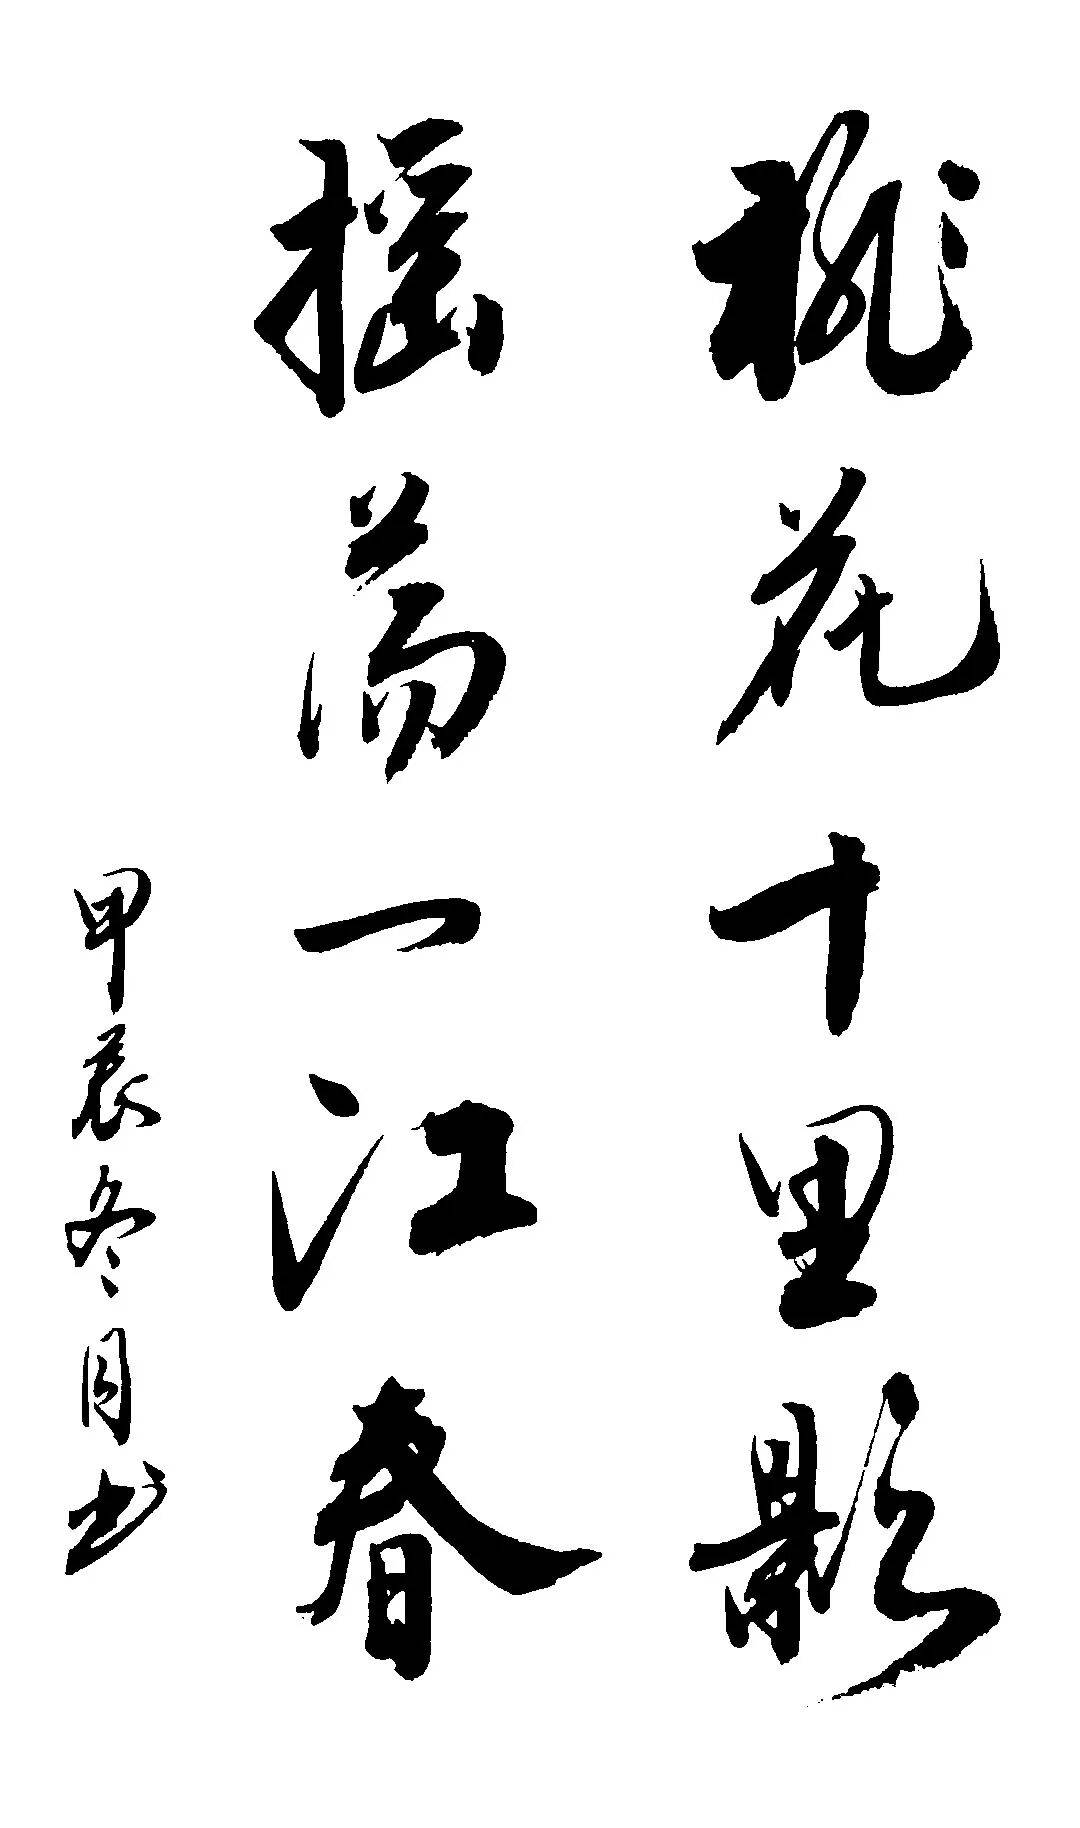 桃花十里影
摇荡一江春
甲辰冬月书